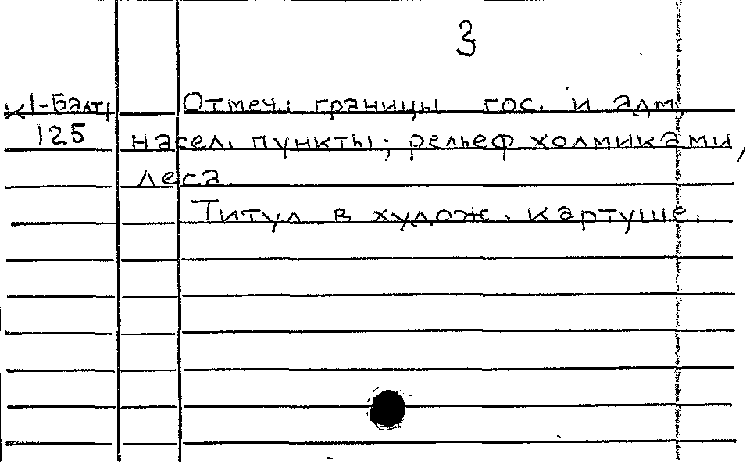 3
К1-Балт1
125
Отмеч. границы гос. и адм,
насел. пункты; рельеф холмиками,
леса.
Титул в худож. картуше.